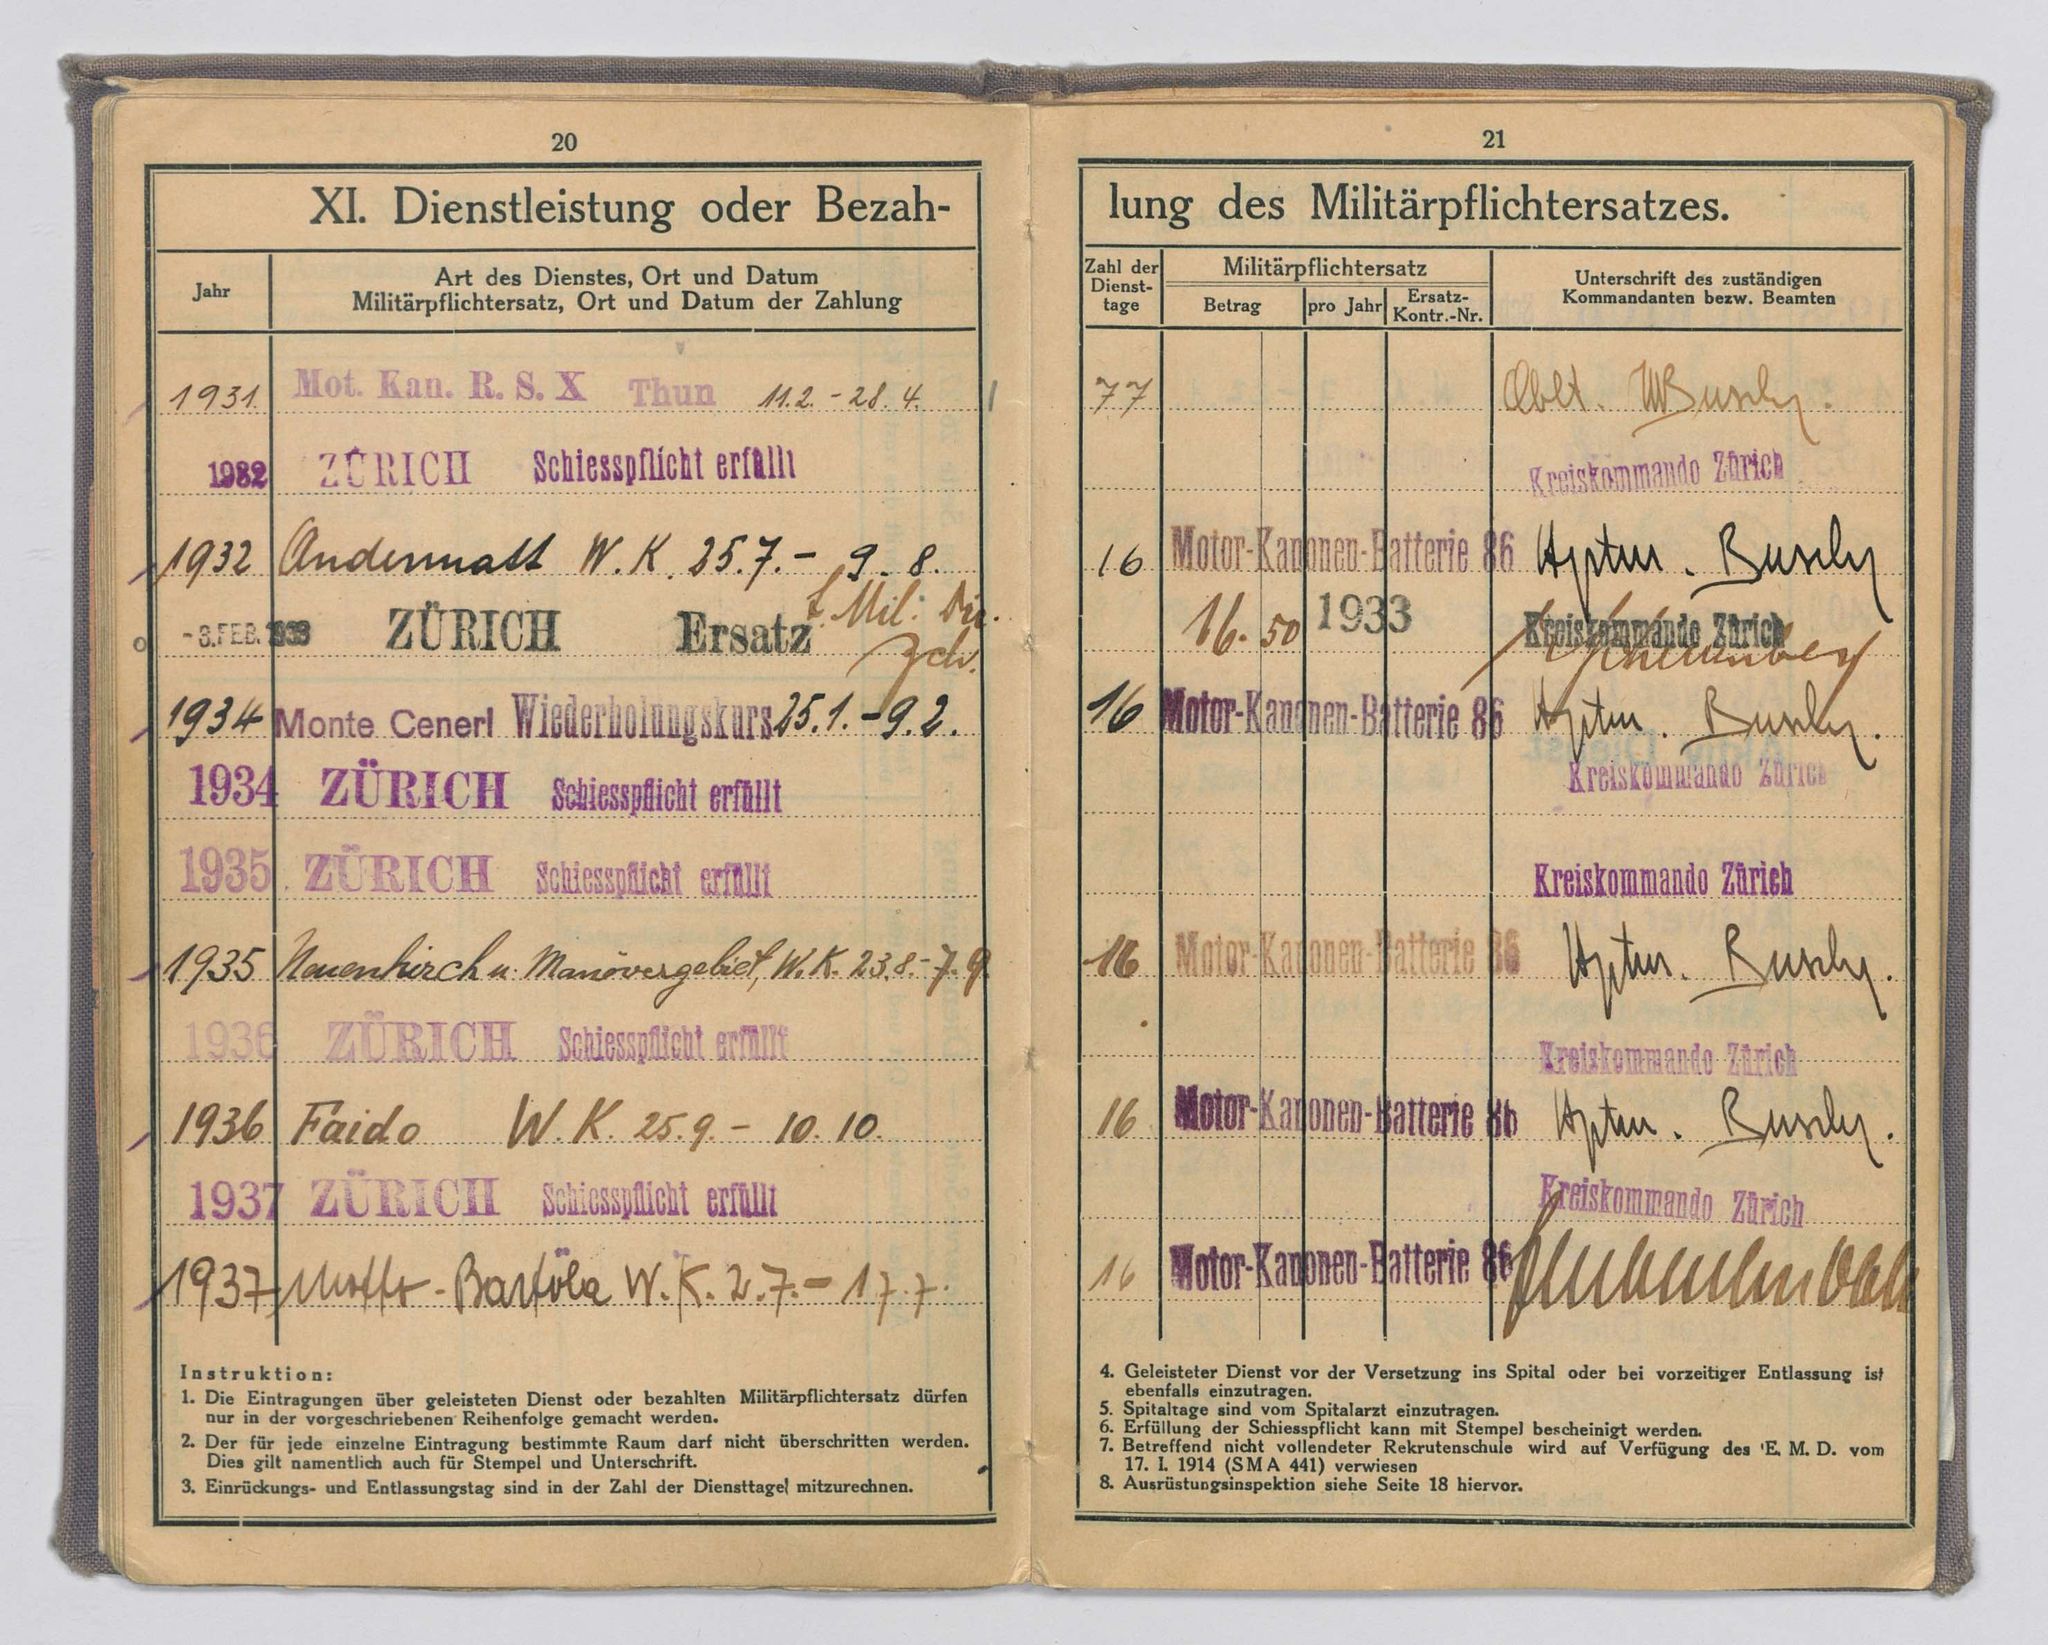 20
XI. Dienstleistung oder Bezah-
Jahr
Art des Dienstes, Ort und Datum
Militärpflichtersatz, Ort und Datum der Zahlung
1931. Mot. Kan. R. S. X Thun 11.2. - 28.4.
1932 ZÜRICH Schiesspflicht erfüllt
1932 Andermatt W. K. 25.7. - 9. 8.
- 3. FEB. 1933 ZÜRICH Ersatz f. Mil. Dir.
Zch.
1934 Monte Ceneri Wiederholungskurs 25.1. - 9.2.
1934 ZÜRICH Schiesspflicht erfüllt
1935 ZÜRICH Schiesspflicht erfüllt
1935 Neuenkirch u. Manövergebiet, W. K. 23.8. - 7.9
1936 ZÜRICH Schiesspflicht erfüllt
1936 Faido W. K. 25.9. - 10.10.
1937 ZÜRICH Schiesspflicht erfüllt
1937 Motto - Bartöla W. K. 2.7. - 17.7.
Instruktion:
1. Die Eintragungen über geleisteten Dienst oder bezahlten Militärpflichtersatz dürfen
nur in der vorgeschriebenen Reihenfolge gemacht werden.
2. Der für jede einzelne Eintragung bestimmte Raum darf nicht überschritten werden.
Dies gilt namentlich auch für Stempel und Unterschrift.
3. Einrückungs- und Entlassungstag sind in der Zahl der Diensttage mitzurechnen.
21
lung des Militärpflichtersatzes.
Zahl der
Dienst-
tage
Militärpflichtersatz
Betrag
pro Jahr
Ersatz-
Kontr.-Nr.
Unterschrift des zuständigen
Kommandanten bezw. Beamten
77 Oblt.
Kreiskommando Zürich
16 Motor-Kanonen-Batterie 86 Hptm.
16. 50 1933 Kreiskommando Zürich
16 Motor-Kanonen-Batterie 86 Hptm.
Kreiskommando Zürich
Kreiskommando Zürich
16 Motor-Kanonen-Batterie 86 Hptm.
Kreiskommando Zürich
16 Motor-Kanonen-Batterie 86 Hptm.
Kreiskommando Zürich
16 Motor-Kanonen-Batterie 86
4. Geleisteter Dienst vor der Versetzung ins Spital oder bei vorzeitiger Entlassung ist
ebenfalls einzutragen.
5. Spitaltage sind vom Spitalarzt einzutragen.
6. Erfüllung der Schiesspflicht kann mit Stempel bescheinigt werden.
7. Betreffend nicht vollendeter Rekrutenschule wird auf Verfügung des E. M. D. vom
17. I. 1914 (SMA 441) verwiesen
8. Ausrüstungsinspektion siehe Seite 18 hiervor.